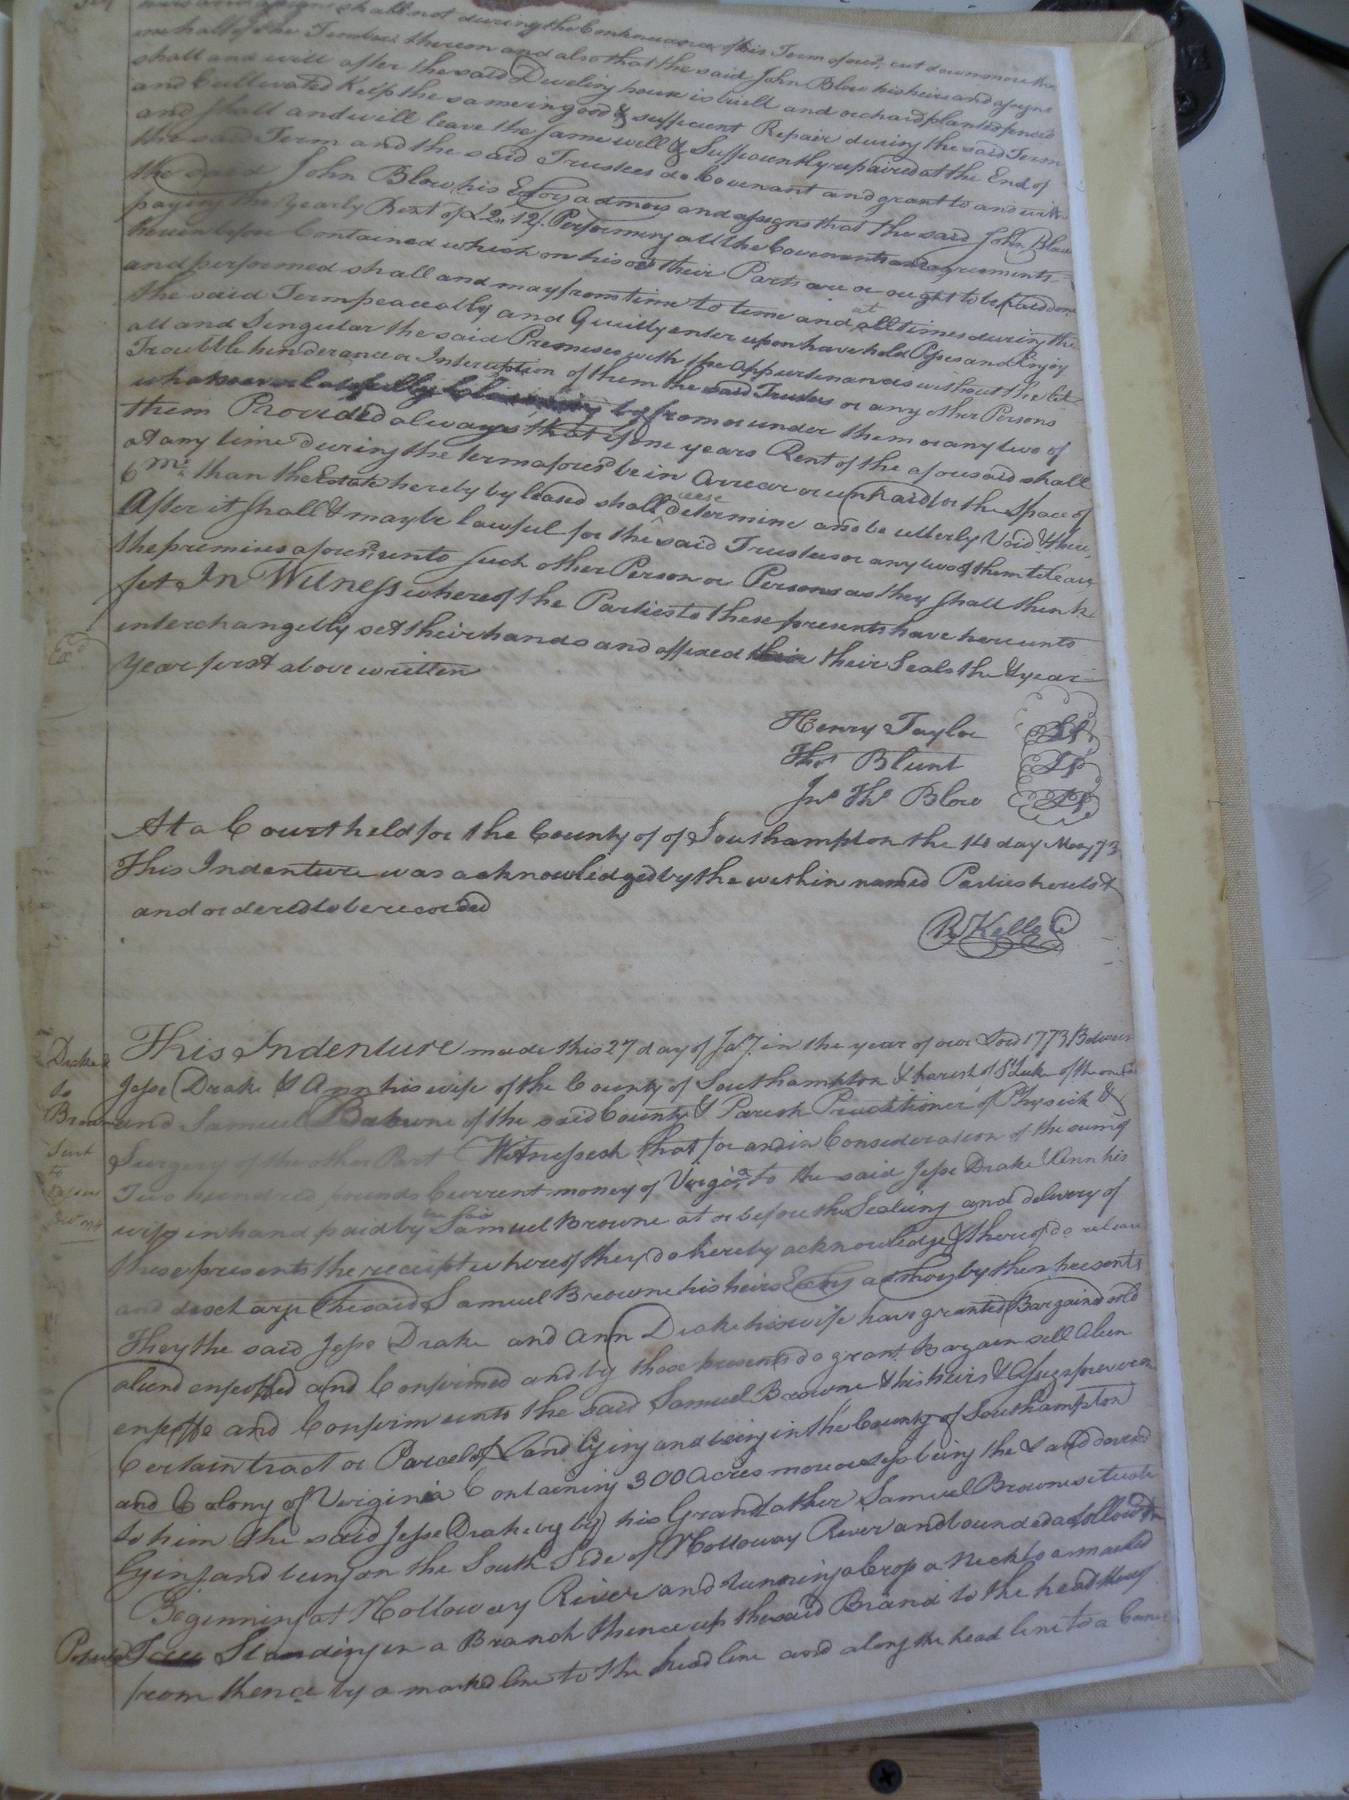 heirs and assigns shall not during the Continuance of this Term afores.d cut down more than
one half of the Timber thereon and also that the said John Blow his heirs and assigns
shall and will after the said Dweling house is built and orchard planted fenced
and Cultivated Keep the same in good & sufficient Repair during the said Term
and shall and will leave the same well & Sufficiently repaired at the End of
the said Term and the said Trustees do Covenant and grant to and with
the said John Blow his Exors admors and assigns that the said John Blow
paying the Yearly Rent of £2,,12/. Performing all the Covenants and agreements
herein before Contained which on his or their Parts are or ought to be paid done
and performed shall and may from time to time and at all times during the
the said Term peaceably and Quietly enter upon have hold Posses and Enjoy
all and Singular the said Premises with the appurtenances without the let
Trouble hinderance or Interuption of them the said Trustees or any other Persons
whatsoever lawfully Claiming by from or under them or any two of
them Provided always that if one years Rent of the aforesaid shall
at any time during the term afores.d be in Arrear or unpaid for the Space of
6 m.s than the Estate hereby by leased shall cease determine and be utterly Void & there
After it shall & may be lawful for the said Trustees or any two of them to lease
the premises afores.d unto such other Person or Persons as they shall think
fit In Witness whereof the Parties to these presents have hereunto
interchangebly set their hands and affixed their their Seals the & year
Year first above written
Henry Taylor LS
Tho.s Blunt LS
Jn.o Th.s Blow LS
At a Court held for the County of of Southampton the 14 day May 73
This Indenture was acknowledged by the within named Parties hereto &
and ordered to be recorded
R Kello C
Drake &
to
Browne
Sent
to
This Indenture made this 27 day of Ja.y in the year of our Lord 1773 Between
Jesse Drake & Ann his wife of the County of Southampton & Parish of S.t Luke of the one Part
and Samuel Browne of the said County & Parish Practitioner of Physick &
Surgery of the other Part Witnesseth that for and in Consideration of the sum of
Two hundred pounds Current money of Virg.a to the said Jesse Drake & Ann his
wife in hand paid by the said Samuel Browne at or before the Sealing and delivery of
these presents the receipt whereof they do hereby acknowledge & thereof do release
and discharge the said Samuel Browne his heirs Exors admors by these presents
They the said Jesse Drake and Ann Drake his wife have granted Bargained sold
aliend enfeoffed and Confirmed and by these presents do grant Bargain sell Alien
enfeoffe and Confirm unto the said Samuel Browne & his heirs & Assigs forever a
Certain tract or Parcel of Land lying and being in the County of Southampton
and Colony of Virginia Containing 300 Acres more or less being the Land devised
to him the said Jesse Drake by by his Grandfather Samuel Browne situate
lying and being on the South Side of Notloway River and bounded as followeth
Beginning at Nottoway River and running a Crop a Neck to a marked
Tree Standing in a Branch thence up the said Branch to the head thereof
from thence by a marked line to the head line and along the head line to a Corner